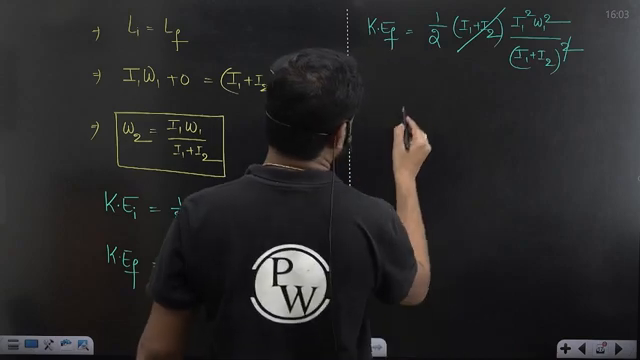 ⇒ Lᵢ = L_f
⇒ I₁W₁ + 0 = (I₁+I₂
⇒ W₂ = I₁W₁ / I₁+I₂
K·Eᵢ = 1/
K·E_f =
K·E_f = 1/2 (I₁+I₂) I₁²W₁² / (I₁+I₂)²
PW
16:03